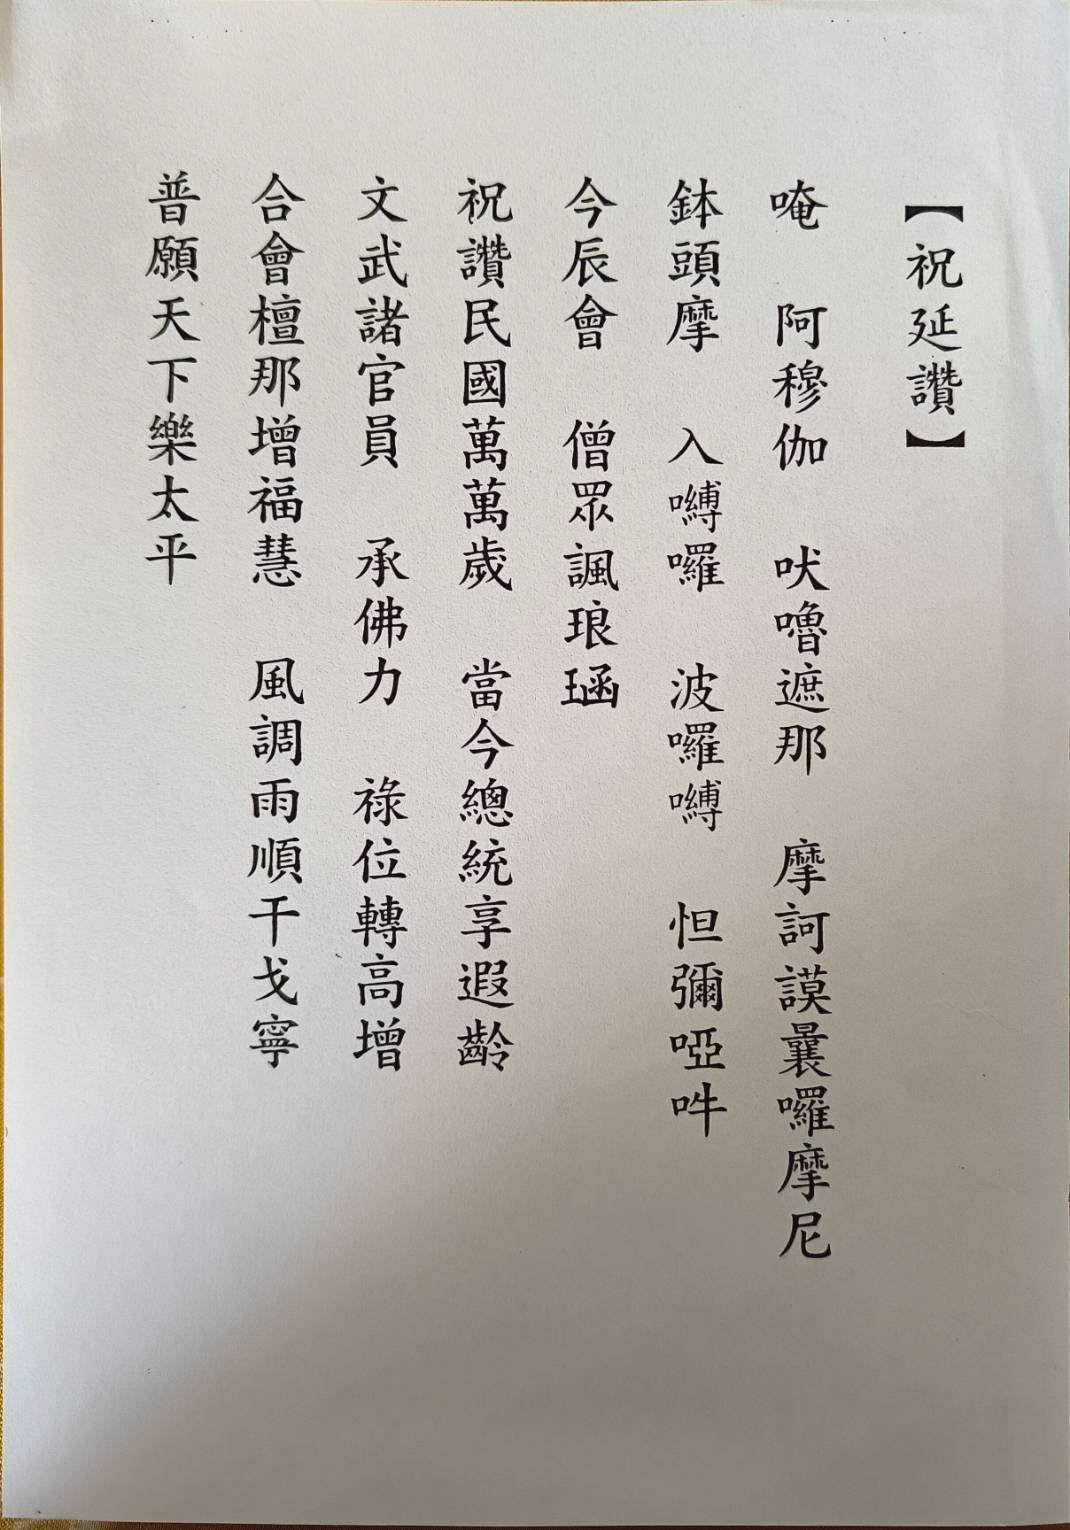 【祝延讚】
唵　阿穆伽　吠嚕遮那　摩訶謨曩囉摩尼
鉢頭摩　入嚩囉　波囉嚩　怛彌啞吽
今辰會　僧眾諷琅函
祝讚民國萬萬歲　當今總統享遐齡
文武諸官員　承佛力　祿位轉高增
合會檀那增福慧　風調雨順干戈寧
普願天下樂太平